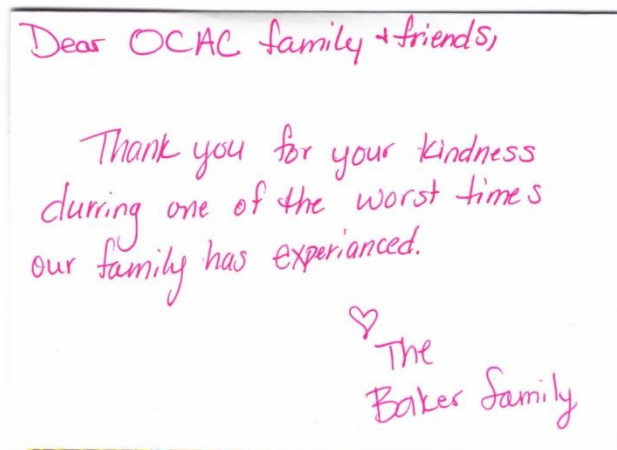 Dear OCAC family + friends,
Thank you for your kindness
durring one of the worst times
our family has experianced.
♡
The
Baker family